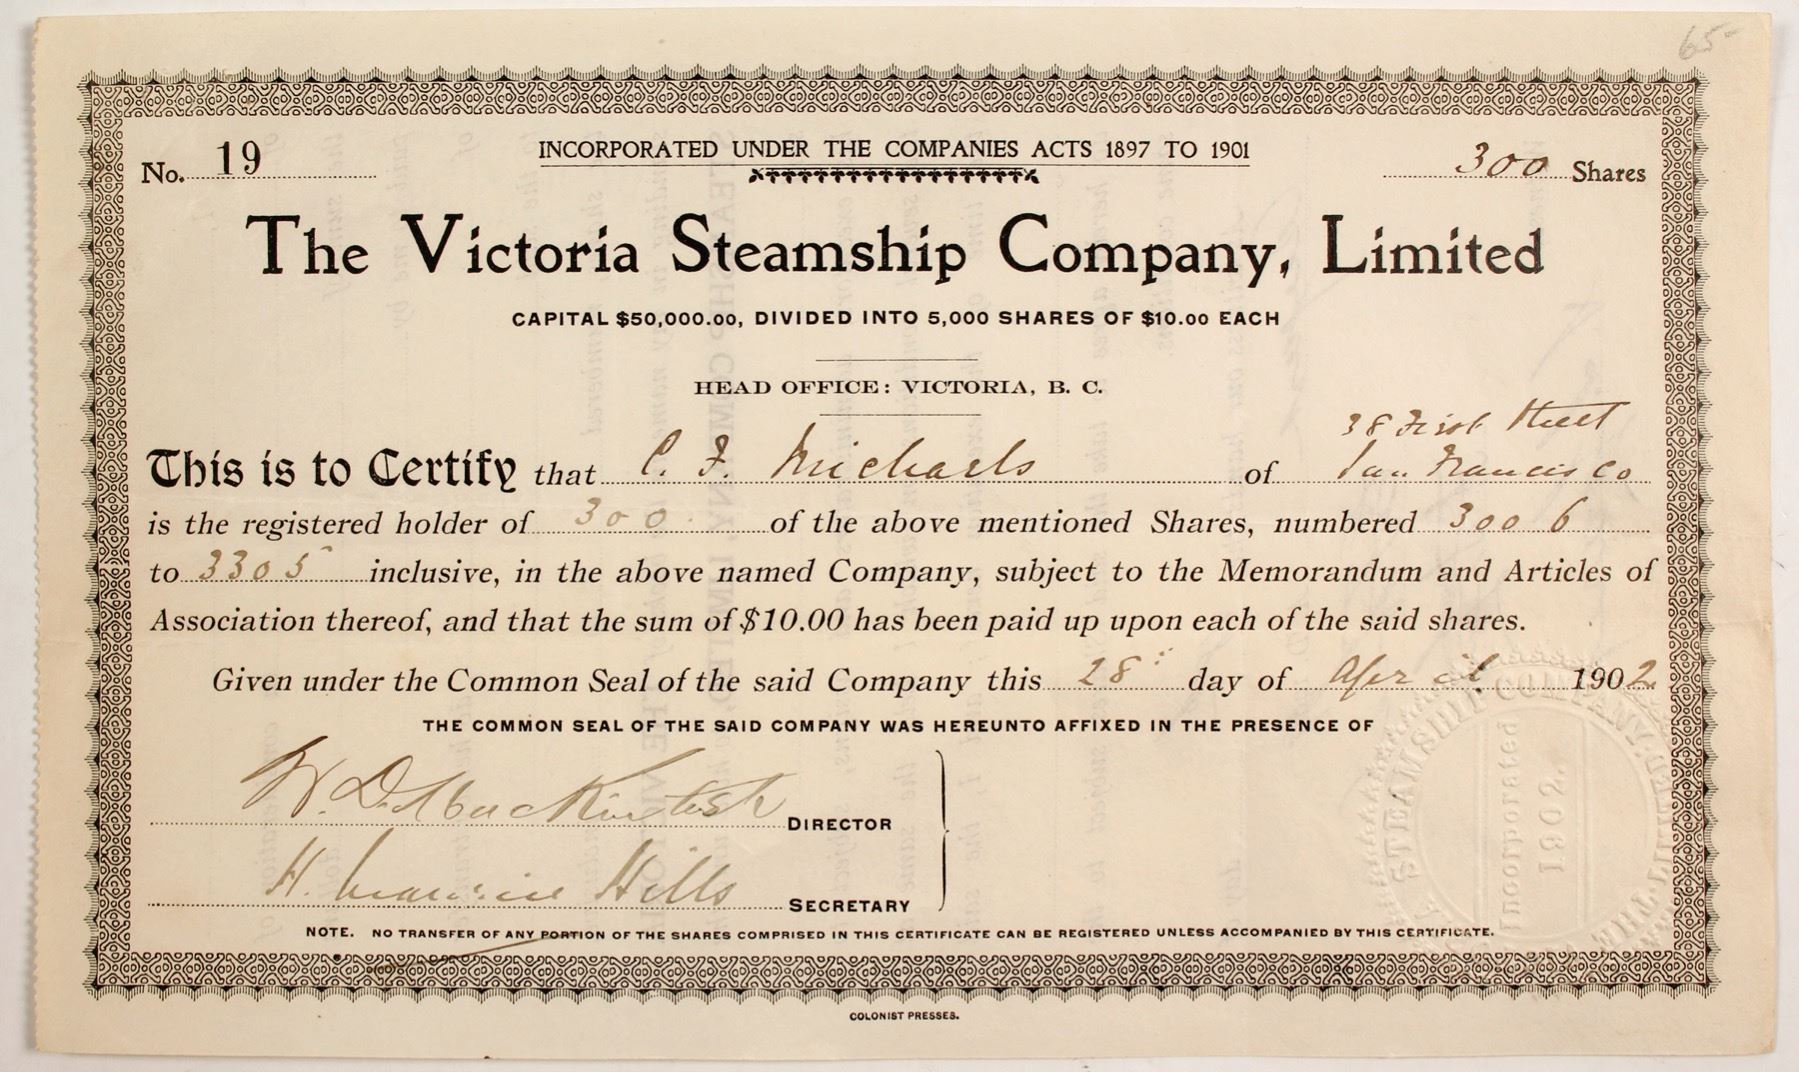 65-
No. 19
INCORPORATED UNDER THE COMPANIES ACTS 1897 TO 1901
300 Shares
The Victoria Steamship Company, Limited
CAPITAL $50,000.00, DIVIDED INTO 5,000 SHARES OF $10.00 EACH
HEAD OFFICE: VICTORIA, B. C.
38 First Street
This is to Certify that C. F. Michaels of San Francisco
is the registered holder of 300 of the above mentioned Shares, numbered 3006
to 3305 inclusive, in the above named Company, subject to the Memorandum and Articles of
Association thereof, and that the sum of $10.00 has been paid up upon each of the said shares.
Given under the Common Seal of the said Company this 28 day of April 1902
THE COMMON SEAL OF THE SAID COMPANY WAS HEREUNTO AFFIXED IN THE PRESENCE OF
W. D. MacKintosh DIRECTOR
H. Maurice Hills SECRETARY
THE STEAMSHIP COMPANY
Incorporated
1902.
NOTE. NO TRANSFER OF ANY PORTION OF THE SHARES COMPRISED IN THIS CERTIFICATE CAN BE REGISTERED UNLESS ACCOMPANIED BY THIS CERTIFICATE.
COLONIST PRESSES.